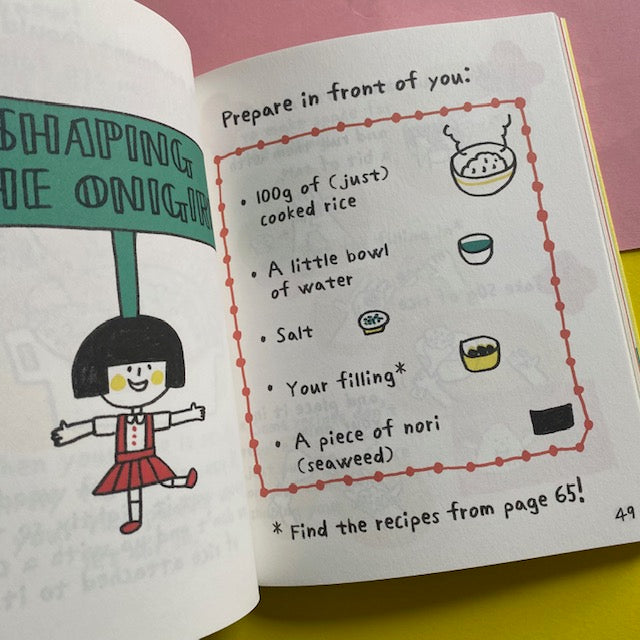 SHAPING
HE ONIGIR
Prepare in front of you:
• 100g of (just)
cooked rice
• A little bowl
of water
• Salt
• Your filling*
• A piece of nori
(seaweed)
* Find the recipes from page 65!
49